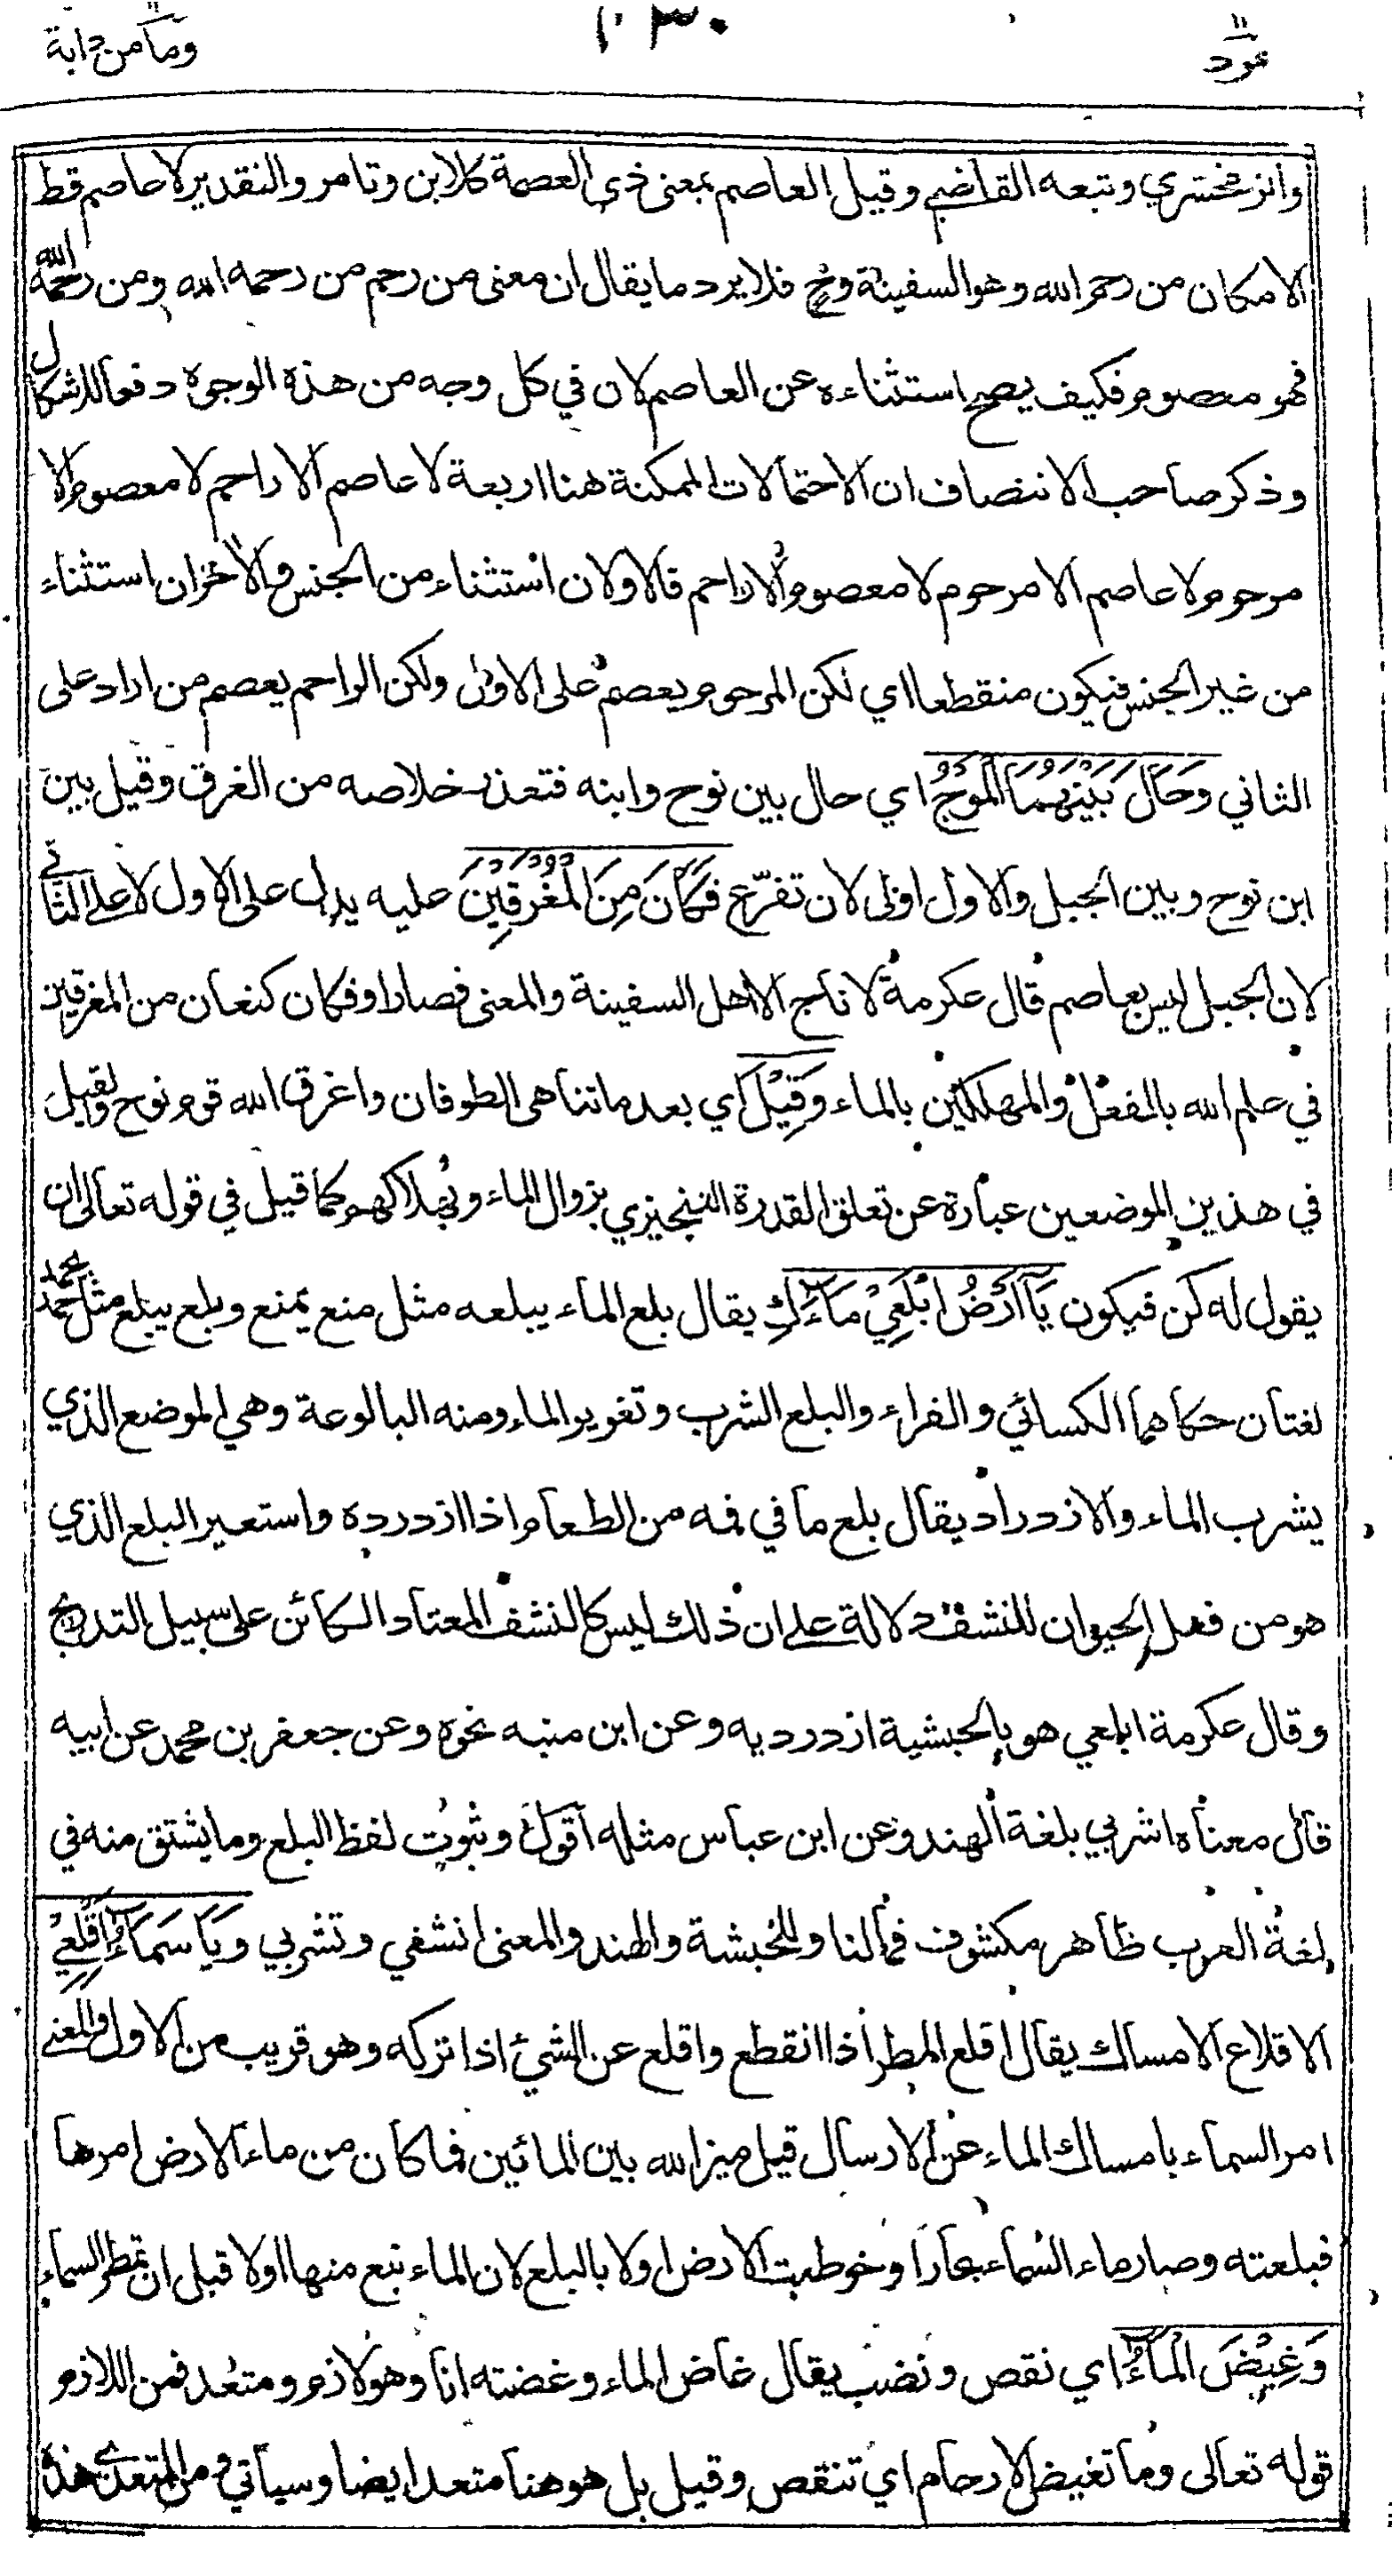 هود ١٠٣٠ وما من دابة
وازمخشري وتبعه القاضي وقيل العاصم بمعنى ذي العصمة كلابن وتامر والتقدير لا عاصم قط
الا مكان من رحم الله وهو السفينة وح فلا يرد ما يقال ان معنى من رحم من رحمه الله ومن رحمه الله
فهو معصوم فكيف يصح استثناءه عن العاصم لان في كل وجه من هذه الوجوه دفعا للاشكال
وذكر صاحب الانتصاف ان الاحتمالات الممكنة هنا اربعة لا عاصم الا راحم لا معصوم الا
مرحوم لا عاصم الا مرحوم لا معصوم الا راحم فالاولان استثناء من الجنس والاخران استثناء
من غير الجنس فيكون منقطعا اي لكن المرحوم يعصم على الاول ولكن الراحم يعصم من اراد على
الثاني وَحَالَ بَيْنَهُمَا الْمَوْجُ اي حال بين نوح وابنه فتعذر خلاصه من الغرق وقيل بين
ابن نوح وبين الجبل والاول اولى لان تفرّع فَكَانَ مِنَ الْمُغْرَقِيْنَ عليه يدل على الاول لا على الثاني
لان الجبل ليس بعاصم قال عكرمة لا ناج الا اهل السفينة والمعنى فصار او فكان كنعان من المغرقين
في علم الله بالفعل والمهلكين بالماء وَقِيْلَ اي بعد ما تناهى الطوفان واغرق الله قوم نوح ولقيل
في هذين الموضعين عبارة عن تعلق القدرة التنجيزي بزوال الماء وبهلاكهم كما قيل في قوله تعالى ان
يقول له كن فيكون يَآاَرْضُ ابْلَعِيْ مَآءَكِ يقال بلع الماء يبلعه مثل منع يمنع وبلع يبلع مثل حمد يحمد
لغتان حكاهما الكسائي والفراء والبلع الشرب وتغوير الماء ومنه البالوعة وهي الموضع الذي
يشرب الماء والازدراد يقال بلع ما في فمه من الطعام اذا ازدرده واستعير البلع الذي
هو من فعل الحيوان للنشف دلالة على ان ذلك ليس كالنشف المعتاد الكائن على سبيل التدريج
وقال عكرمة ابلعي هو بالحبشية ازدرديه وعن ابن منبه نحوه وعن جعفر بن محمد عن ابيه
قال معناه اشربي بلغة الهند وعن ابن عباس مثله اقول وثبوت لفظ البلع وما يشتق منه في
لغة العرب ظاهر مكشوف فمالنا وللحبشة والهند والمعنى انشفي وتشربي وَيَاسَمَآءُ اَقْلِعِيْ
الاقلاع الامساك يقال اقلع المطر اذا انقطع واقلع عن الشيء اذا تركه وهو قريب من الاول والمعنى
امر السماء بامساك الماء عن الارسال قيل ميز الله بين المائين فما كان من ماء الارض امرها
فبلعته وصار ماء السماء بحارا وخوطبت الارض اولا بالبلع لان الماء نبع منها اولا قبل ان تمطر السماء
وَغِيْضَ الْمَآءُ اي نقص ونضب يقال غاض الماء وغضته انا وهو لازم ومتعد فمن اللازم
قوله تعالى وما تغيض الارحام اي تنقص وقيل بل هو هنا متعد ايضا وسيأتي ومن المتعدي هذه